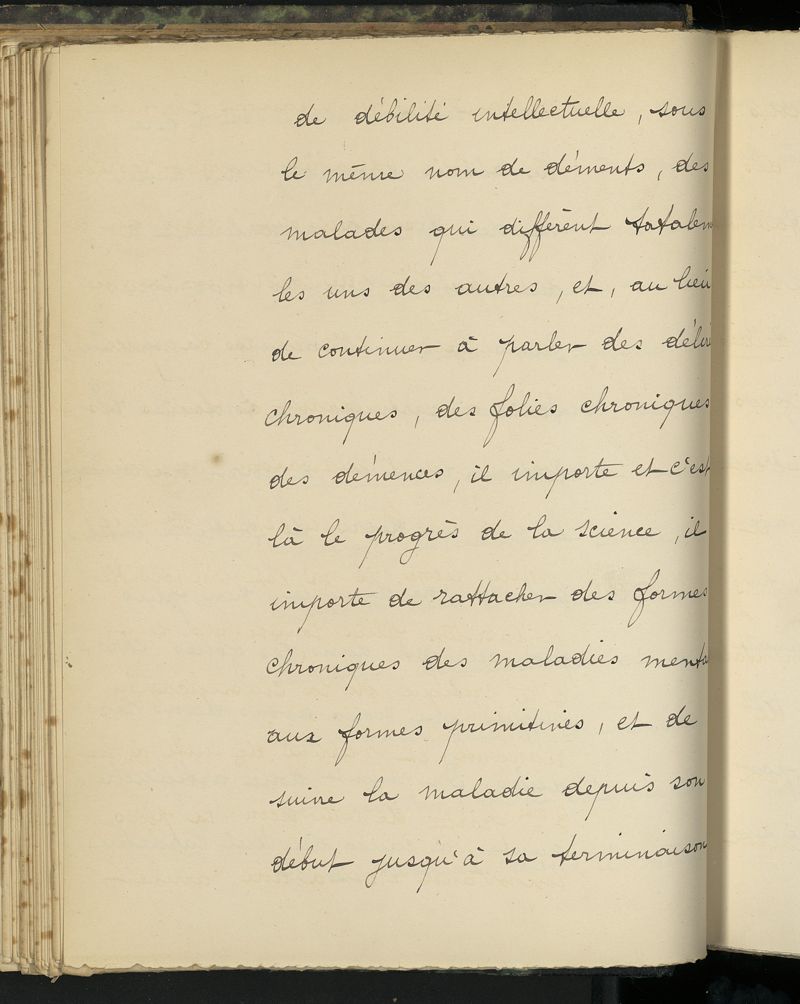 de débilité intellectuelle, sous
le même nom de déments, des
malades qui diffèrent totalem
les uns des autres, et, au lieu
de continuer à parler des déli
chroniques, des folies chroniques
des démences, il importe et c'est
là le progrès de la science, il
importe de rattacher des formes
chroniques des maladies menta
aux formes primitives, et de
suivre la maladie depuis son
début jusqu'à sa terminaison